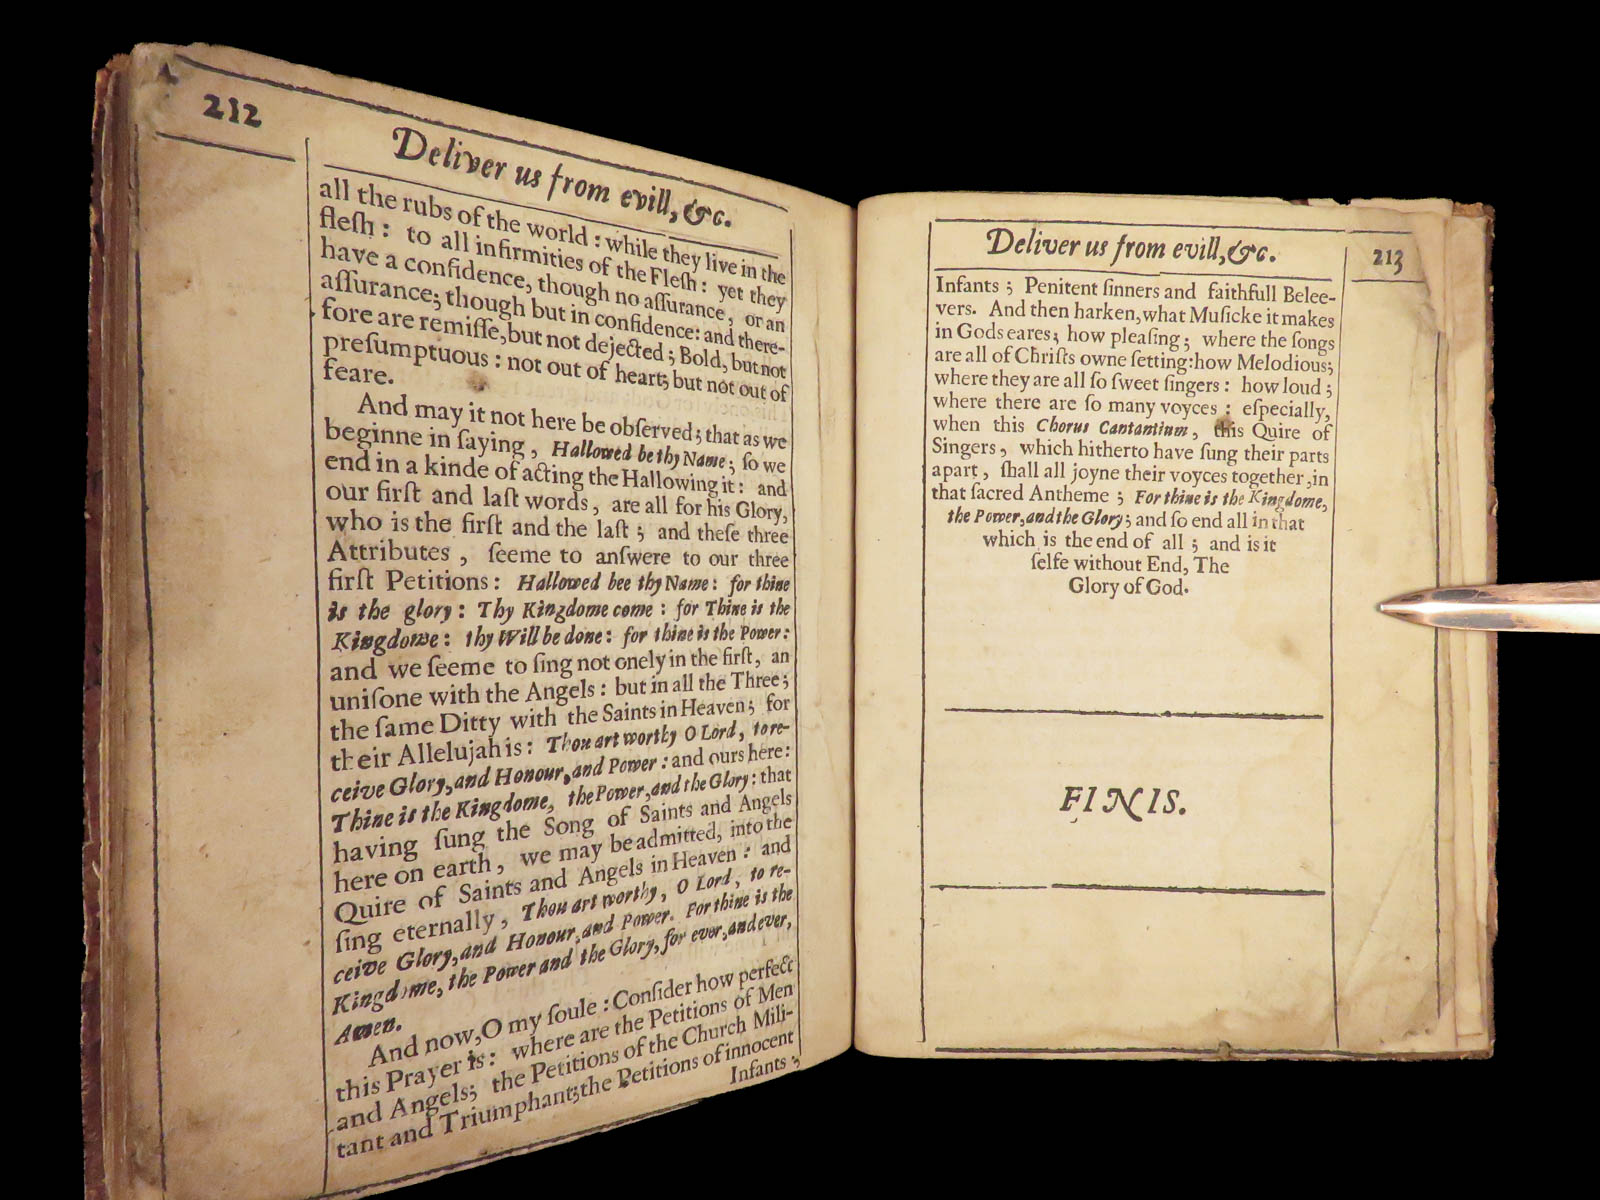 212
Deliver us from evill, &c.
all the rubs of the world : while they live in the
fleſh : to all infirmities of the Fleſh : yet they
have a confidence, though no aſſurance, or an
aſſurance; though but in confidence: and there-
fore are remiſſe, but not dejected ; Bold, but not
preſumptuous : not out of heart; but not out of
feare.
And may it not here be obſerved; that as we
beginne in ſaying, Hallowed be thy Name; ſo we
end in a kinde of acting the Hallowing it : and
our firſt and laſt words, are all for his Glory,
who is the firſt and the laſt ; and theſe three
Attributes, ſeeme to anſwere to our three
firſt Petitions : Hallowed bee thy Name : for thine
is the glory : Thy Kingdome come : for Thine is the
Kingdome : thy Will be done : for thine is the Power :
and we ſeeme to ſing not onely in the firſt, an
uniſone with the Angels : but in all the Three;
the ſame Ditty with the Saints in Heaven; for
their Allelujah is : Thou art worthy O Lord, to re-
ceive Glory, and Honour, and Power : and ours here :
Thine is the Kingdome, the Power, and the Glory : that
having ſung the Song of Saints and Angels
here on earth, we may be admitted, into the
Quire of Saints and Angels in Heaven : and
ſing eternally, Thou art worthy, O Lord, to re-
ceive Glory, and Honour, and Power. For thine is the
Kingdome, the Power and the Glory, for ever, and ever,
Amen.
And now, O my ſoule : Conſider how perfect
this Prayer is : where are the Petitions of Men
and Angels; the Petitions of the Church Mili-
tant and Triumphant; the Petitions of innocent
Infants ;
Deliver us from evill, &c.
213
Infants ; Penitent ſinners and faithfull Belee-
vers. And then harken, what Muſicke it makes
in Gods eares; how pleaſing ; where the ſongs
are all of Chriſts owne ſetting: how Melodious;
where they are all ſo ſweet ſingers : how loud ;
where there are ſo many voyces : eſpecially,
when this Chorus Cantantium, this Quire of
Singers, which hitherto have ſung their parts
apart, ſhall all joyne their voyces together, in
that ſacred Antheme ; For thine is the Kingdome,
the Power, and the Glory ; and ſo end all in that
which is the end of all ; and is it
ſelfe without End, The
Glory of God.
FINIS.